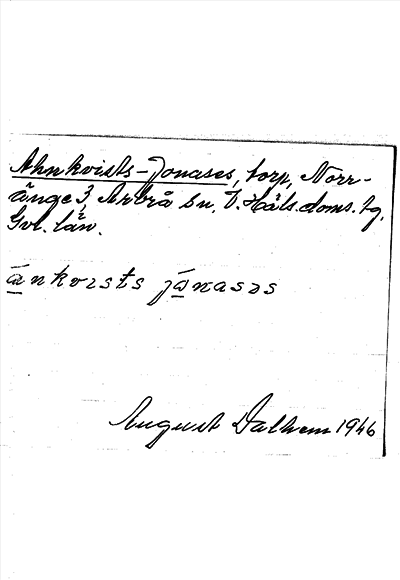 Ahnkvists-Jonases, torp, Norr-
änge 3, Arbrå sn, V. Häls. doms. tg,
Gvl. län.
ánkvists jónasəs
August Dalhem 1946